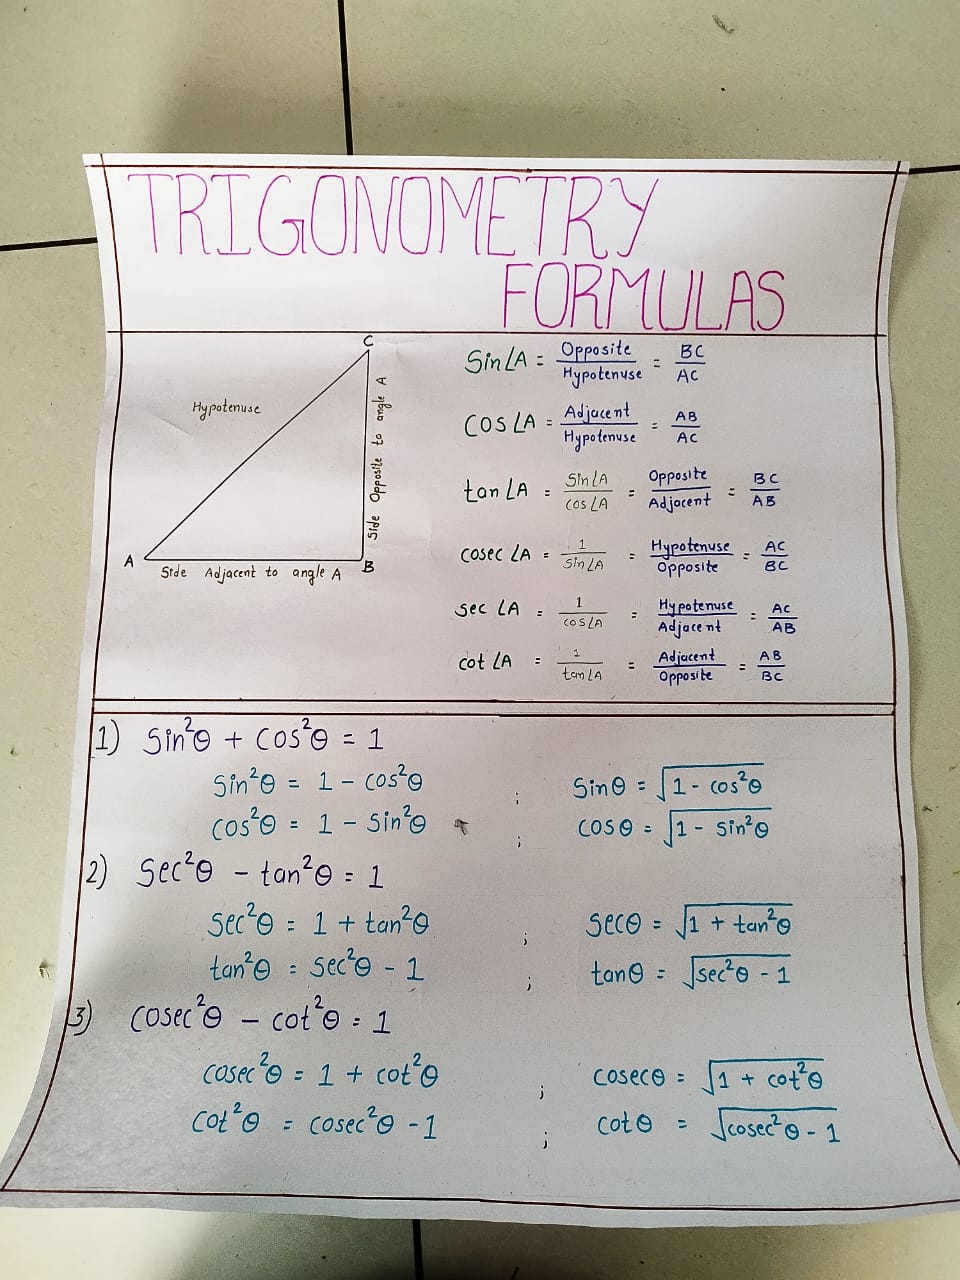 TRIGONOMETRY
FORMULAS
C
Hypotenuse
Side Opposite to angle A
A
B
Side Adjacent to angle A
Sin∠A = Opposite/Hypotenuse = BC/AC
COS∠A = Adjacent/Hypotenuse = AB/AC
tan∠A = Sin∠A/cos∠A = Opposite/Adjacent = BC/AB
cosec∠A = 1/Sin∠A = Hypotenuse/Opposite = AC/BC
sec∠A = 1/cos∠A = Hypotenuse/Adjacent = AC/AB
cot∠A = 1/tan∠A = Adjacent/Opposite = AB/BC
1) Sin²θ + cos²θ = 1
Sin²θ = 1 - cos²θ ; Sinθ = √(1 - cos²θ)
cos²θ = 1 - Sin²θ ; cosθ = √(1 - Sin²θ)
2) Sec²θ - tan²θ = 1
Sec²θ = 1 + tan²θ ; secθ = √(1 + tan²θ)
tan²θ = Sec²θ - 1 ; tanθ = √(sec²θ - 1)
3) cosec²θ - cot²θ = 1
cosec²θ = 1 + cot²θ ; cosecθ = √(1 + cot²θ)
cot²θ = cosec²θ - 1 ; cotθ = √(cosec²θ - 1)